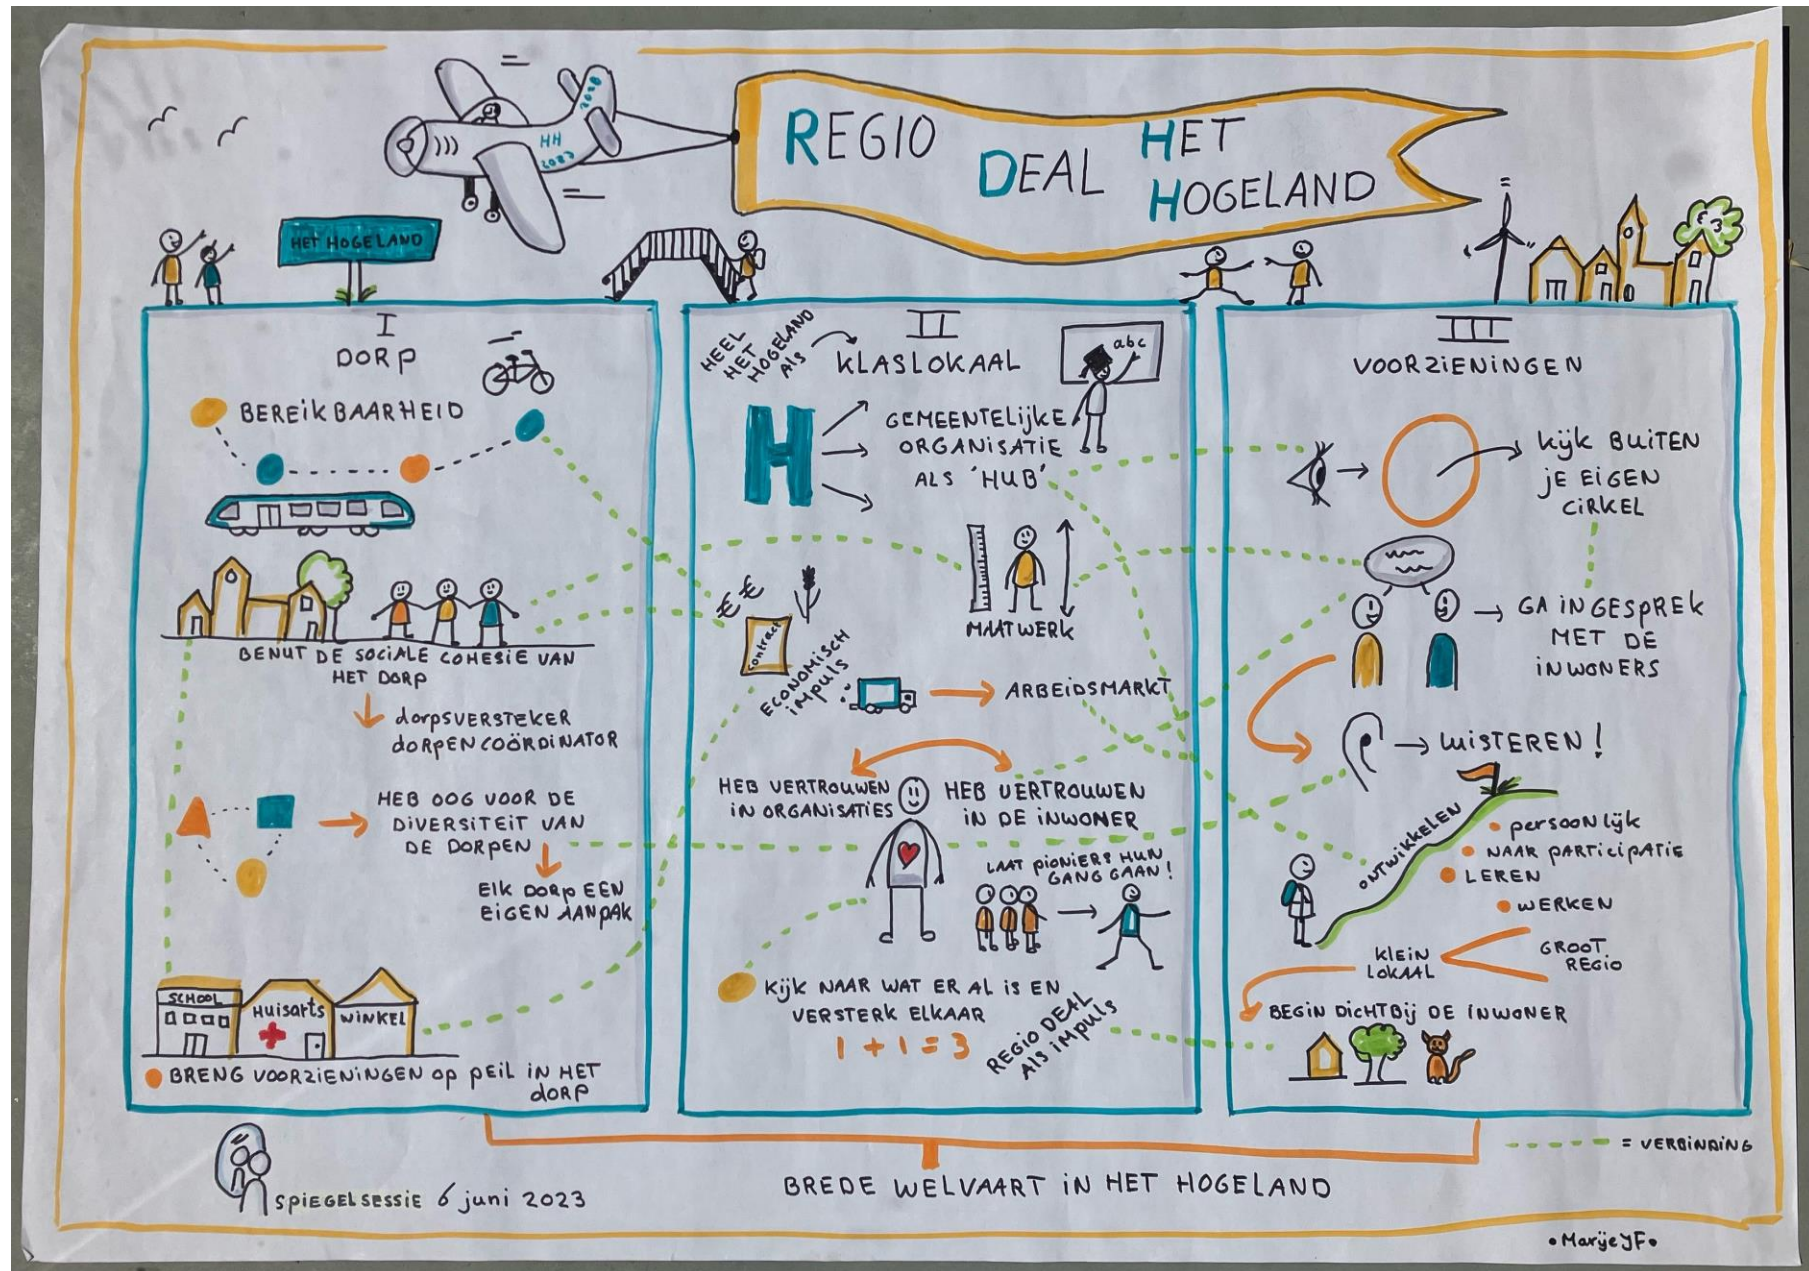 REGIO DEAL HET HOGELAND
HH
2023
2020
HET HOGELAND
I
DORP
BEREIKBAARHEID
BENUT DE SOCIALE COHESIE VAN
HET DORP
dorpsversteker
dorpencoördinator
HEB OOG VOOR DE
DIVERSITEIT VAN
DE DORPEN
Elk dorp een
eigen aanpak
SCHOOL
Huisarts
WINKEL
BRENG VOORZIENINGEN op peil in HET
dorp
II
HEEL
HET
HOGELAND
Als
KLASLOKAAL
abc
H
GEMEENTELIJKE
ORGANISATIE
ALS 'HUB'
MAATWERK
€ €
contract
ECONOMISCH
impuls
ARBEIDSMARKT
HEB VERTROUWEN
IN ORGANISATIES
HEB VERTROUWEN
IN DE INWONER
LAAT pioniers HUN
GANG GAAN!
Kijk NAAR WAT ER AL IS EN
VERSTERK ELKAAR
1 + 1 = 3
REGIO DEAL
Als impuls
III
VOORZIENINGEN
Kijk BUITEN
je EIGEN
CIRKEL
GA IN GESPREK
MET DE
INWONERS
LUISTEREN!
ONTWIKKELEN
persoonlijk
NAAR participatie
LEREN
WERKEN
KLEIN
LOKAAL
GROOT
REGIO
BEGIN DICHTBIJ DE INWONER
= VERBINDING
BREDE WELVAART IN HET HOGELAND
SPIEGELSESSIE 6 juni 2023
•MarijeJF•